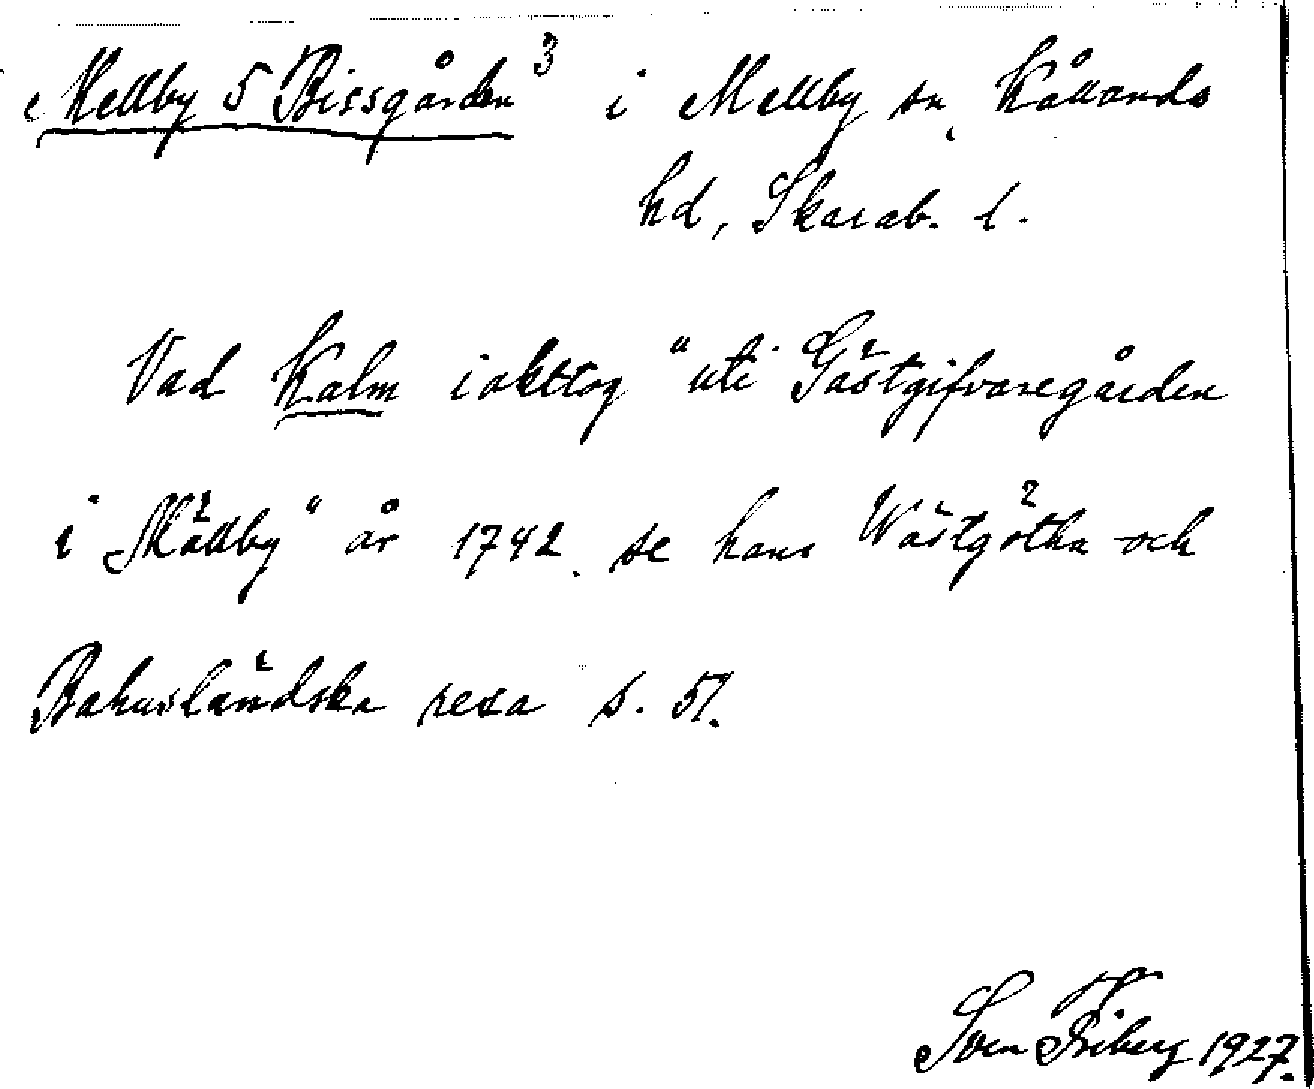 Mellby 5 Bissgården 3 i Mellby sn, Kållands
hd, Skarab. l.
Vad Kalm iakttog "uti Gästgifvaregården
i Mällby" år 1742, se hans Wästgötha och
Bahusländska resa s. 51.
Sven Friberg 1927.